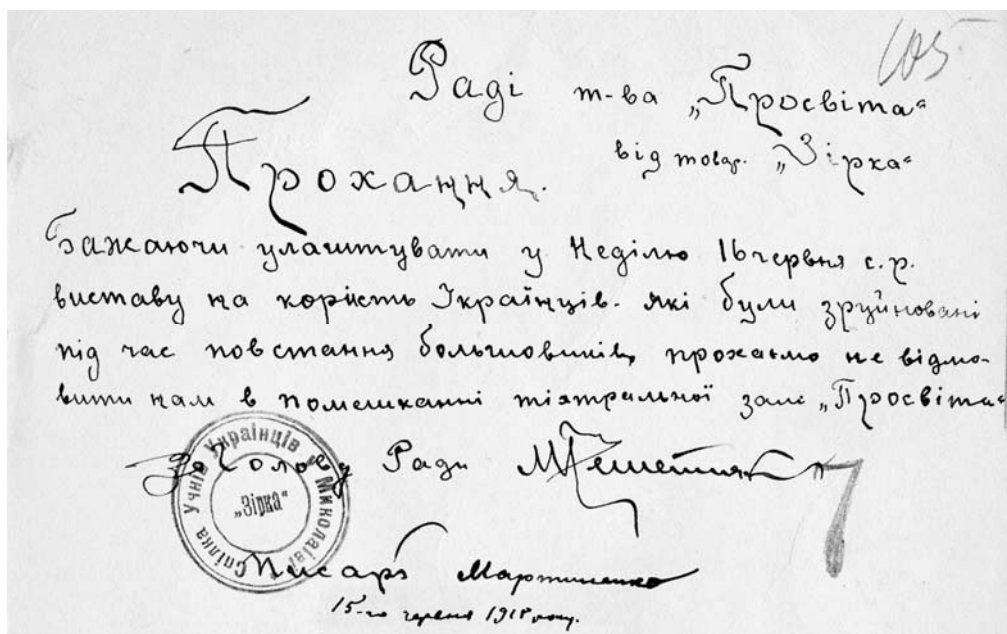 105
Раді т-ва „Просвіта"
від товар. „Зірка"
Прохання.
Бажаючи улаштувати у Неділю 16 червня с.р.
виставу на корість Українців. які були зруйновані
під час повстання большовиків, прохаємо не відмо-
вити нам в помешканні тіятральної залі „Просвіта"
За Голову Ради
Спілка Учнів Українців м. Миколаїва
„Зірка"
Писарь Мартиненко
15-го червня 1918 року.